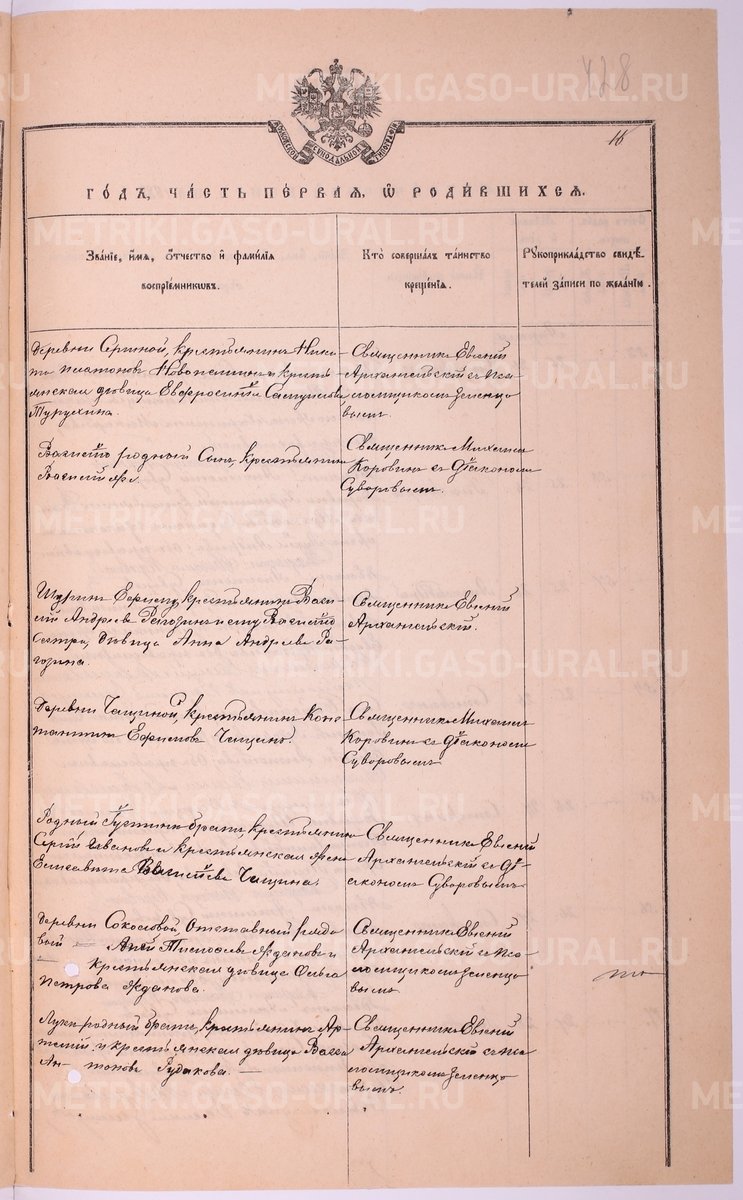 428
16
МОСКОВСКОЙ СѴНОДАЛЬНОЙ ТИПОГРАФІИ
ГОДЪ, ЧАСТЬ ПЕРВАЯ, Ѡ РОДИВШИХСЯ.
Званіе, имя, отчество и фамилія
воспріемниковъ.
Кто совершалъ таинство
крещенія.
Рукоприкладство свидѣ-
телей записи по желанію.
Деревни крестьянинъ Ники-
та Платоновъ и кресть-
янская дѣвица Евфросинія
Турухина.
Священникъ Евгеній
Архангельскій съ пса-
ломщикомъ Зеленцо-
вымъ.
родный Сынъ, крестьянинъ
Василій
Священникъ Михаилъ
Коровинъ съ Діакономъ
Суворовымъ.
Шуринъ крестьянинъ Васи-
лій Андреевъ Рагозинъ и ему
сестра, дѣвица Анна Андреева Ра-
гозина.
Священникъ Евгеній
Архангельскій.
Деревни Чащиной, крестьянинъ Конс-
тантинъ Ефимовъ Чащинъ.
Священникъ Михаилъ
Коровинъ съ Діакономъ
Суворовымъ
Родный братъ, крестьянинъ
Сергій Ивановъ и крестьянская жена
Елисавета Васильева Чащина.
Священникъ Евгеній
Архангельскій съ Ді-
акономъ Суворовымъ.
Деревни Соколовой, Отставный рядо-
вый — Ждановъ и
— крестьянская дѣвица Ольга
Петрова Жданова.
Священникъ Евгеній
Архангельскій съ пса-
ломщикомъ Зеленцо-
вымъ.
Луки родный братъ, крестьянинъ Ар-
темій и крестьянская дѣвица Васса
Ан— тонова Гудакова. —
Священникъ Евгеній
Архангельскій съ пса-
ломщикомъ Зеленцо-
вымъ.
METRIKI.GASO-URAL.RU